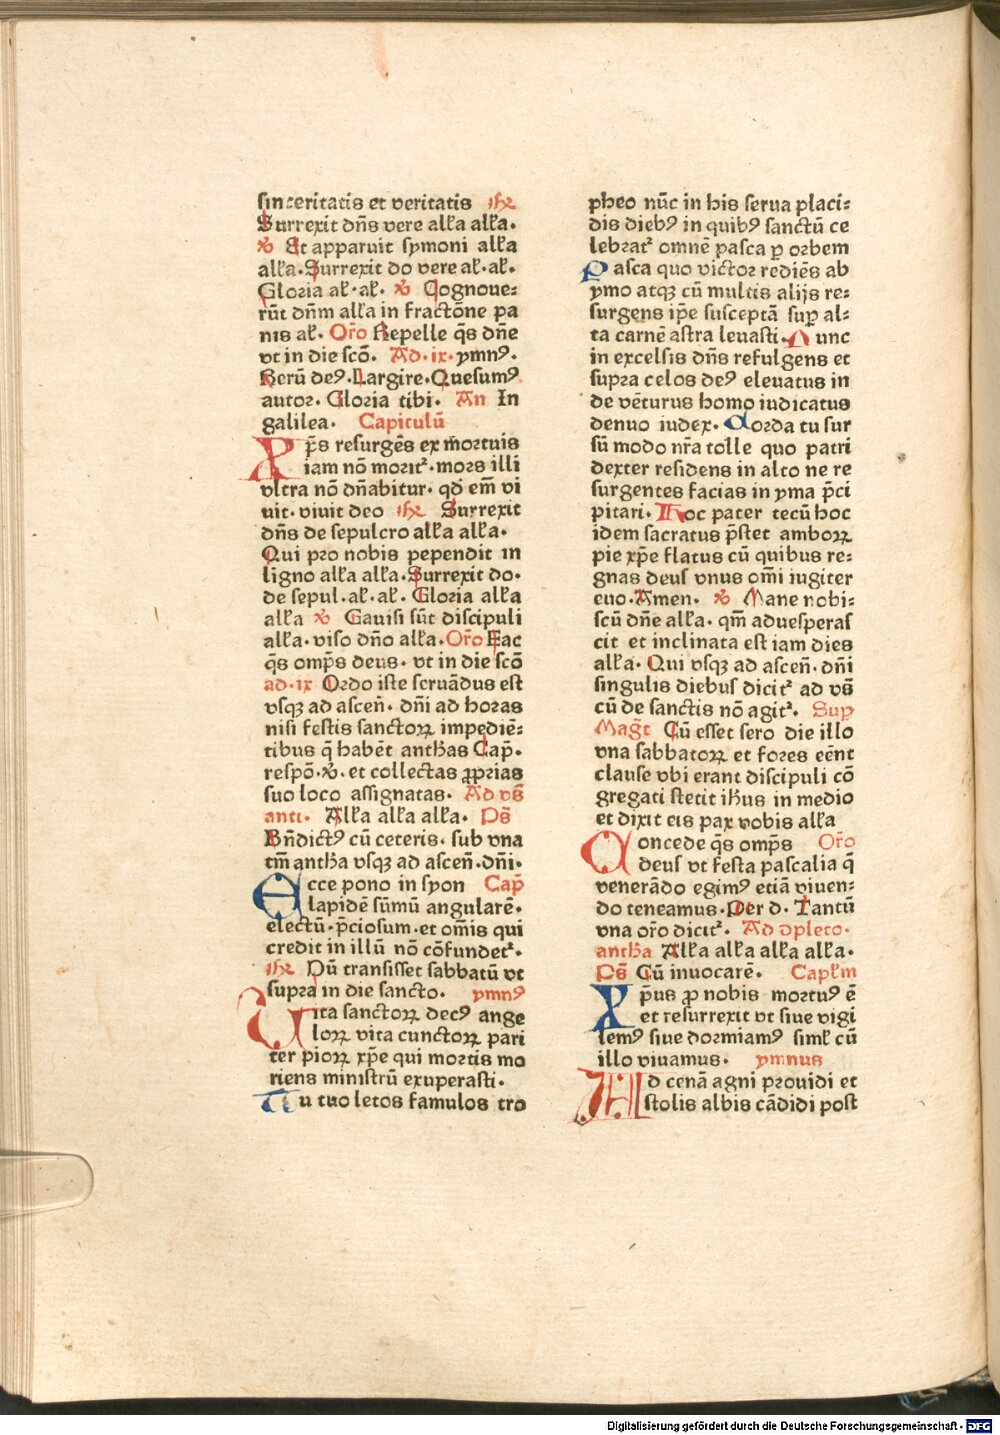 sinceritatis et veritatis ihc
Surrexit dn̄s vere alła alła.
℣ Et apparuit symoni alła
alła. Surrexit do vere al̄. al̄.
Gloria al̄. al̄. ℣ Cognoue-
rūt dn̄m alła in fractōne pa
nis al̄. Or̄o Repelle q̄s dn̄e
vt in die scō. Ad. ix. ymnꝰ.
Rerū deꝰ. Largire. Quesumꝰ
autor. Gloria tibi. An In
galilea. Capitulū
Xp̄s resurgēs ex mortuis
iam nō morit᷑. mors illi
vltra nō dn̄abitur. qd̄ em̄ vi
uit. viuit deo ihc Surrexit
dn̄s de sepulcro alła alła.
Qui pro nobis pependit in
ligno alła alła. Surrexit do.
de sepul. al̄. al̄. Gloria alła
alła ℣ Gauisi sūt discipuli
alła. viso dn̄o alła. Or̄o Fac
q̄s omp̄s deus. vt in die scō
ad. ix Ordo iste seruādus est
vsqꝫ ad ascen̄. dn̄i ad horas
nisi festis sanctoꝝ impediē-
tibus q̄ habēt antħas Cap̄.
respō. ℣. et collectas ꝓprias
suo loco assignatas. Ad vs̄
anti. Alła alła alła. Ps̄
Bn̄dictꝰ cū ceteris. sub vna
tm̄ antħa vsqꝫ ad ascen̄. dn̄i.
Ecce pono in syon Cap̄
lapidē sūmū angularē.
electū. p̄ciosum. et om̄is qui
credit in illū nō cōfundet᷑.
ihc Dū transisset sabbatū vt
supra in die sancto. ymnꝰ
Uita sanctoꝝ decꝰ ange
loꝝ vita cunctoꝝ pari
ter pioꝝ xp̄e qui mortis mo
riens ministrū exuperasti.
Tu tuo letos famulos tro
pheo nūc in his serua placi-
dis diebꝰ in quibꝰ sanctū ce
lebrat᷑ omnē pasca ꝑ orbem
Pasca quo victor rediēs ab
ymo atqꝫ cū multis alijs re-
surgens ip̄e susceptā suꝑ al-
ta carnē astra leuasti. Nunc
in excelsis dn̄s refulgens et
supra celos deꝰ eleuatus in
de vēturus homo iudicatus
denuo iudex. Corda tu sur
sū modo nr̄a tolle quo patri
dexter residens in alto ne re
surgentes facias in yma p̄ci
pitari. Hoc pater tecū hoc
idem sacratus p̄stet amboꝝ
pie xp̄e flatus cū quibus re-
gnas deus vnus om̄i iugiter
euo. Amen. ℣ Mane nobi-
scū dn̄e alła. qm̄ aduesperas
cit et inclinata est iam dies
alła. Qui vsqꝫ ad ascen̄. dn̄i
singulis diebus dicit᷑ ad vs̄
cū de sanctis nō agit᷑. Suꝑ
Magn̄t Cū esset sero die illo
vna sabbatoꝝ et fores eēnt
clause vbi erant discipuli cō
gregati stetit iħus in medio
et dixit eis pax vobis alła
Concede q̄s omp̄s Or̄o
deus vt festa pascalia q̄
venerādo egimꝰ etiā viuen-
do teneamus. Per d. Tantū
vna or̄o dicit᷑. Ad ꝯpleto.
antħa Alła alła alła alła.
Ps̄ Cū inuocarē. Capłm
Xp̄us ꝓ nobis mortuꝰ ē
et resurrexit vt siue vigi
lemꝰ siue dormiamꝰ siml̄ cū
illo viuamus. ymnus
Ad cenā agni prouidi et
stolis albis cādidi post
Digitalisierung gefördert durch die Deutsche Forschungsgemeinschaft - DFG